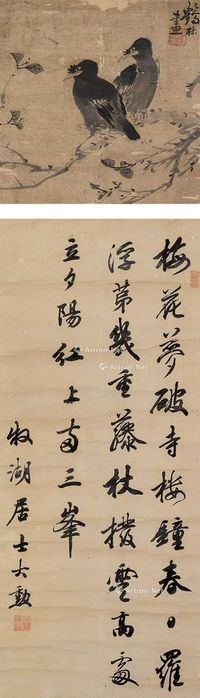 鶴林畫
梅花夢破寺樓鐘春日羅
浮第幾重藤杖撥雲高處
立夕陽紅上兩三峯
牧湖居士大勲
Artron.Net